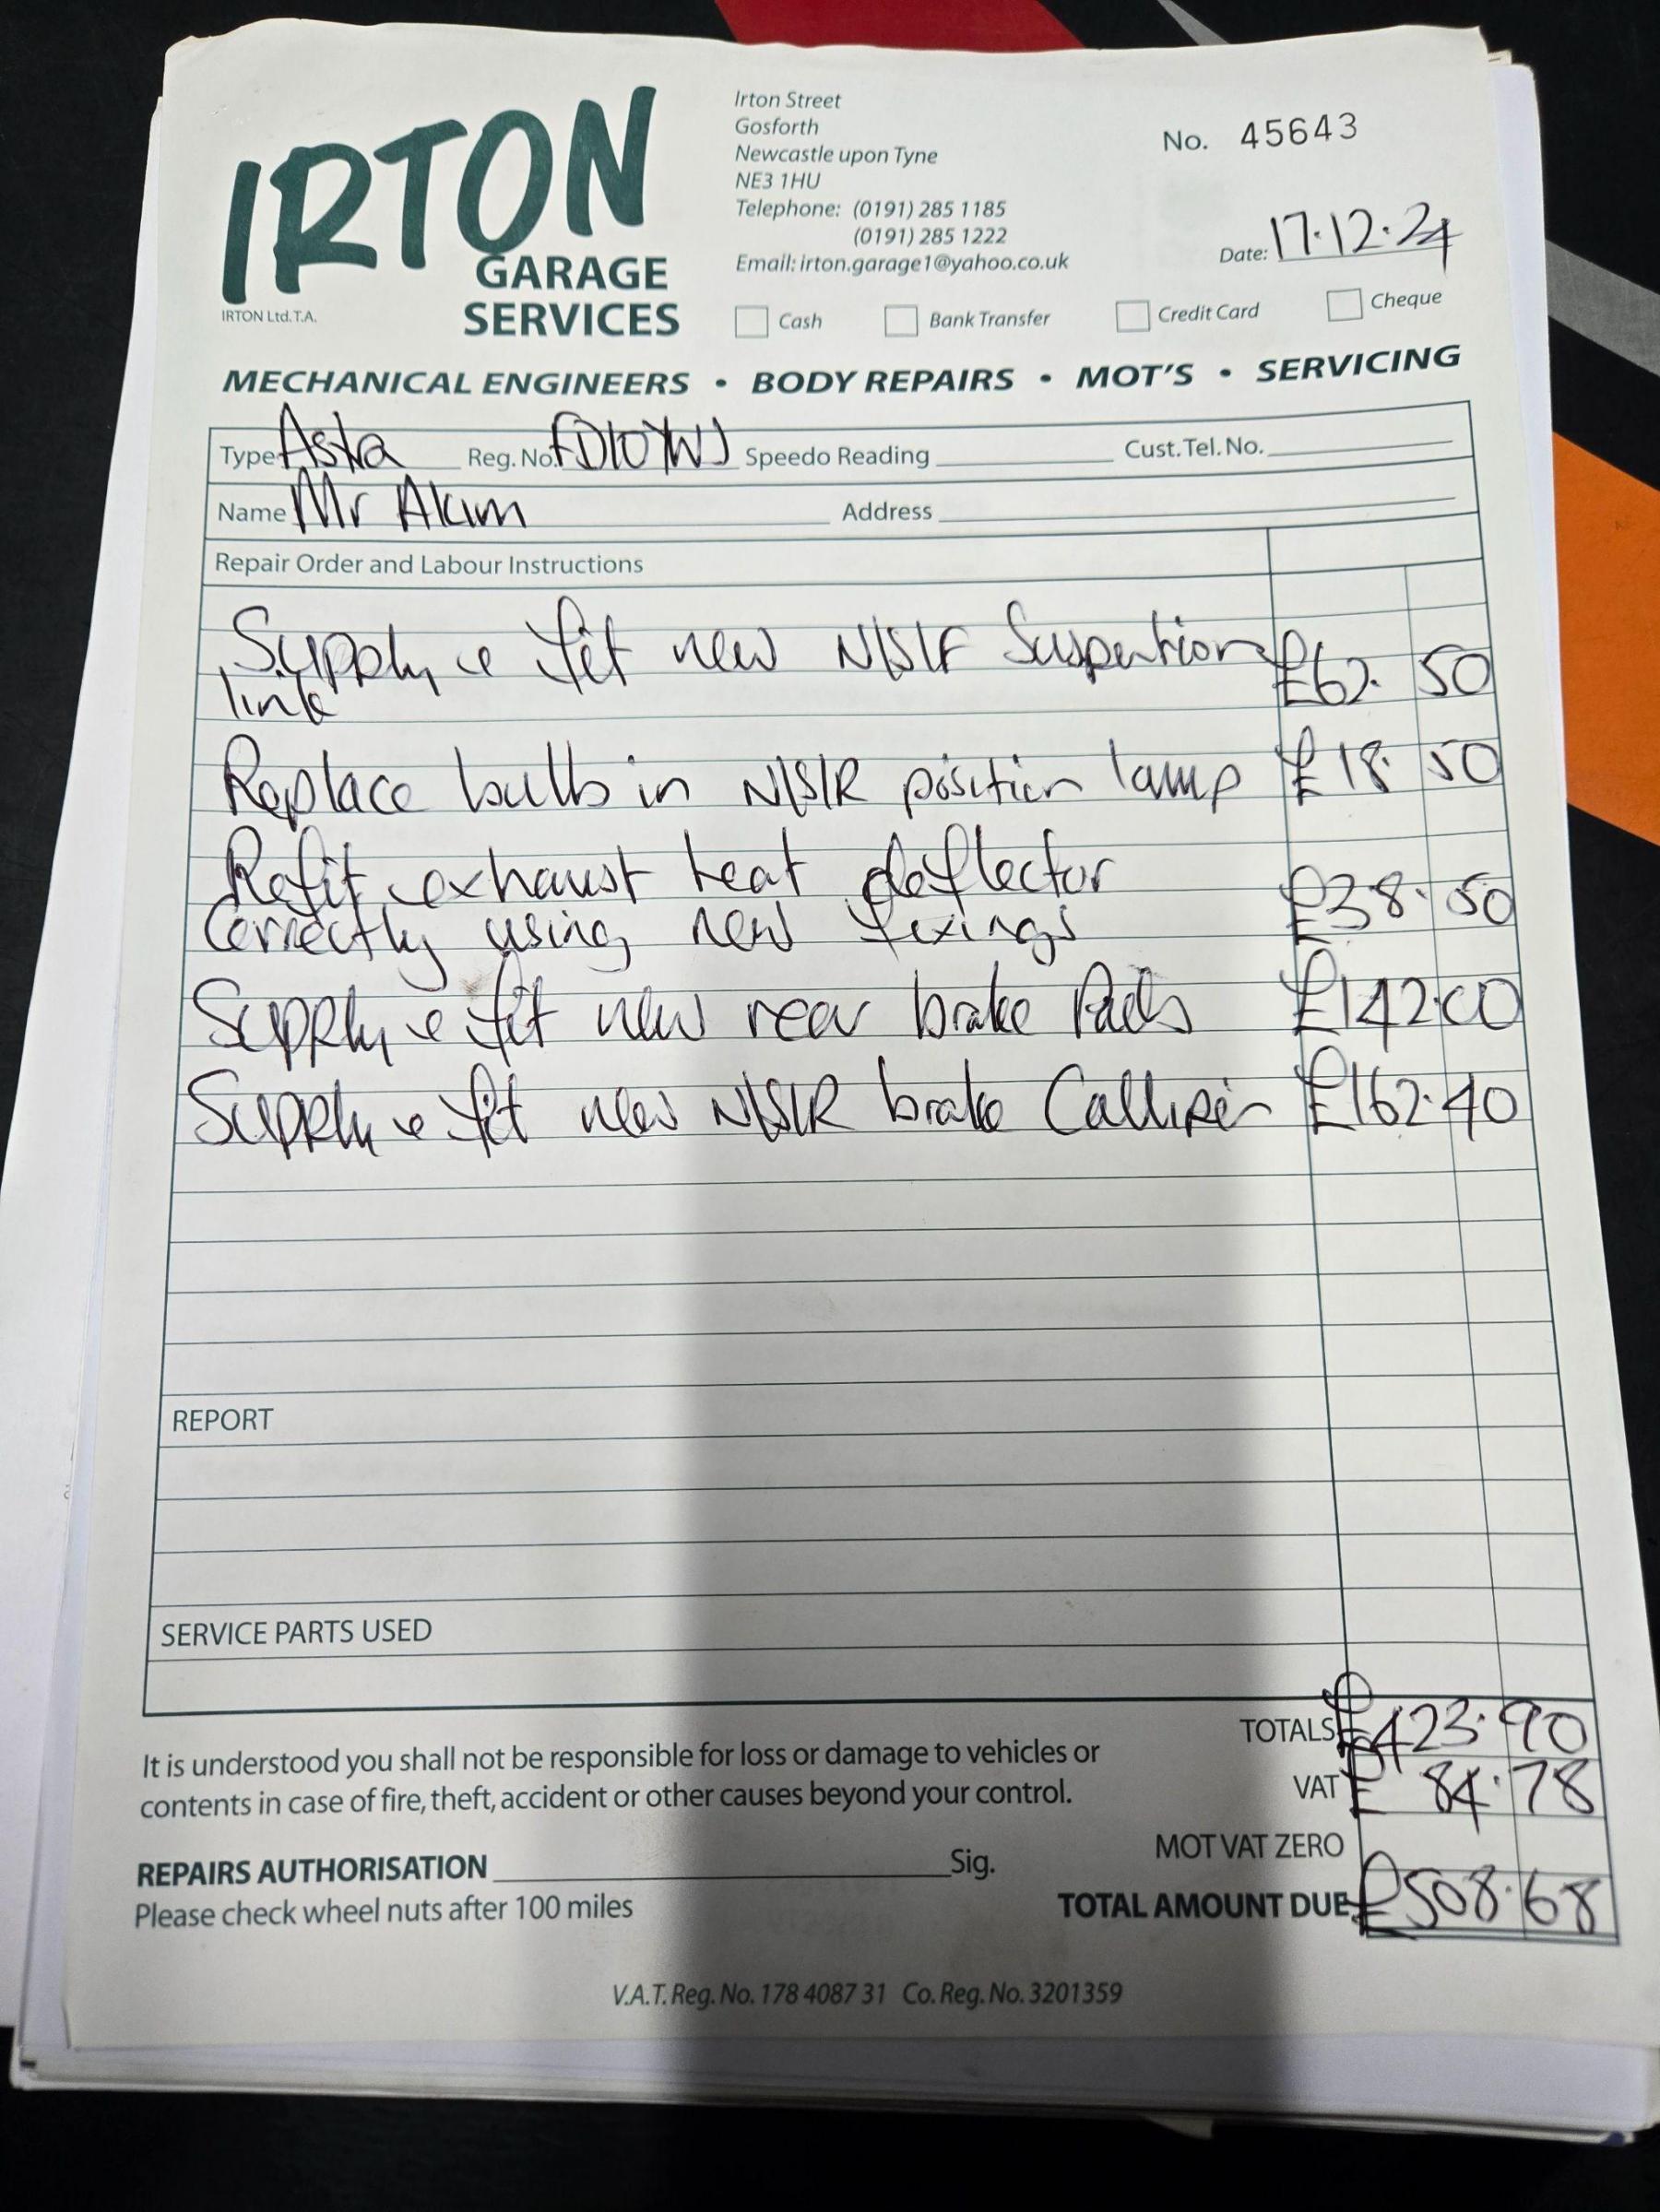 IRTON
GARAGE
SERVICES
IRTON Ltd.T.A.
Irton Street
Gosforth
Newcastle upon Tyne
NE3 1HU
Telephone: (0191) 285 1185
(0191) 285 1222
Email: irton.garage1@yahoo.co.uk
No. 45643
Date: 17.12.24
Cash Bank Transfer Credit Card Cheque
MECHANICAL ENGINEERS • BODY REPAIRS • MOT'S • SERVICING
Type Astra Reg. No. FD10YWJ Speedo Reading Cust. Tel. No.
Name Mr Akim Address
Repair Order and Labour Instructions
Supply & fit new N/S/F Suspention £62.50
link
Replace bulb in N/S/R position lamp £18.50
Refit exhaust heat deflector
correctly using new fixings £38.50
Supply & fit new rear brake Pads £142.00
Supply & fit new N/S/R brake Calliper £162.40
REPORT
SERVICE PARTS USED
TOTALS £423.90
It is understood you shall not be responsible for loss or damage to vehicles or
contents in case of fire, theft, accident or other causes beyond your control.
VAT £84.78
MOT VAT ZERO
REPAIRS AUTHORISATION Sig.
TOTAL AMOUNT DUE £508.68
Please check wheel nuts after 100 miles
V.A.T. Reg. No. 178 4087 31 Co. Reg. No. 3201359